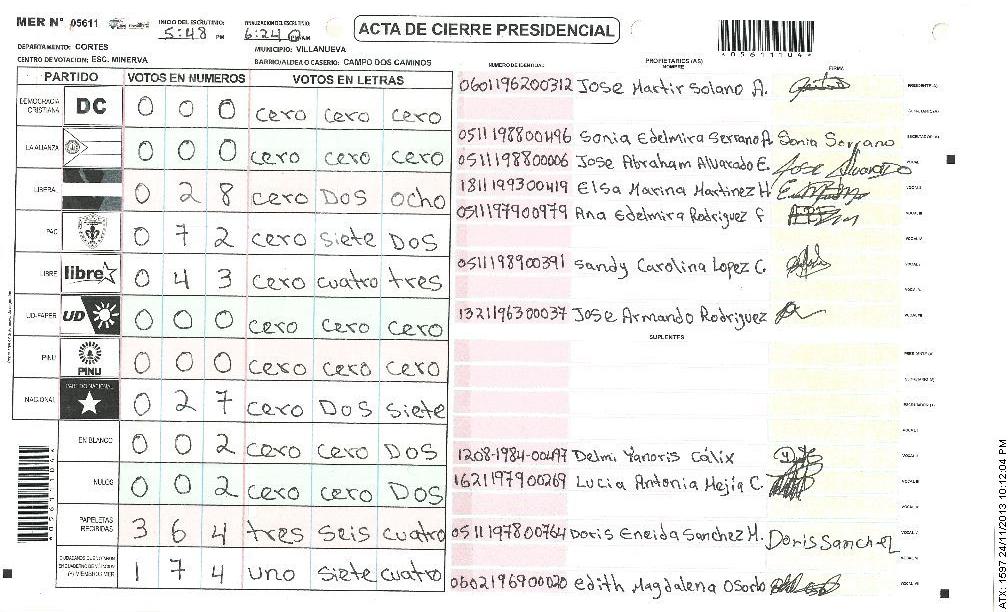 MER N° 05611 INICIO DEL ESCRUTINIO: 5:48 PM FINALIZACION DEL ESCRUTINIO: 6:24 AM
ACTA DE CIERRE PRESIDENCIAL
*05611104*
DEPARTAMENTO: CORTES MUNICIPIO: VILLANUEVA
CENTRO DE VOTACION: ESC. MINERVA BARRIO/ALDEA O CASERIO: CAMPO DOS CAMINOS
PARTIDO VOTOS EN NUMEROS VOTOS EN LETRAS
DEMOCRACIA CRISTIANA DC 0 0 0 cero cero cero
LA ALIANZA 0 0 0 cero cero cero
LIBERAL 0 2 8 cero Dos ocho
PAC 0 7 2 cero siete Dos
LIBRE libre 0 4 3 cero cuatro tres
UD-FAPER UD 0 0 0 cero cero cero
PINU PINU 0 0 0 cero cero cero
NACIONAL PARTIDO NACIONAL 0 2 7 cero Dos siete
EN BLANCO 0 0 2 cero cero Dos
NULOS 0 0 2 cero cero Dos
PAPELETAS RECIBIDAS 3 6 4 tres seis cuatro
1 7 4 uno siete cuatro
NUMERO DE IDENTIDAD PROPIETARIOS (AS) NOMBRE FIRMA
0601196200312 Jose Martir Solano A. PRESIDENTE (A)
0511198800496 Sonia Edelmira Serrano A Sonia Serrano
0511198800006 Jose Abraham Alvarado E. Jose Alvarado
1811199300419 Elsa Marina Martinez H
0511197900979 Ana Edelmira Rodriguez F
0511198900391 Sandy Carolina Lopez C.
1321196300037 Jose Armando Rodriguez
SUPLENTES
1208-1984-00497 Delmi Yanoris Cálix
1621197900269 Lucia Antonia Mejia C.
0511197800764 Doris Eneida Sanchez M. Doris Sanchez
0602196900020 edith Magdalena Osorto
*05611104*
ATX: 1597 24/11/2013 10:12:04 PM